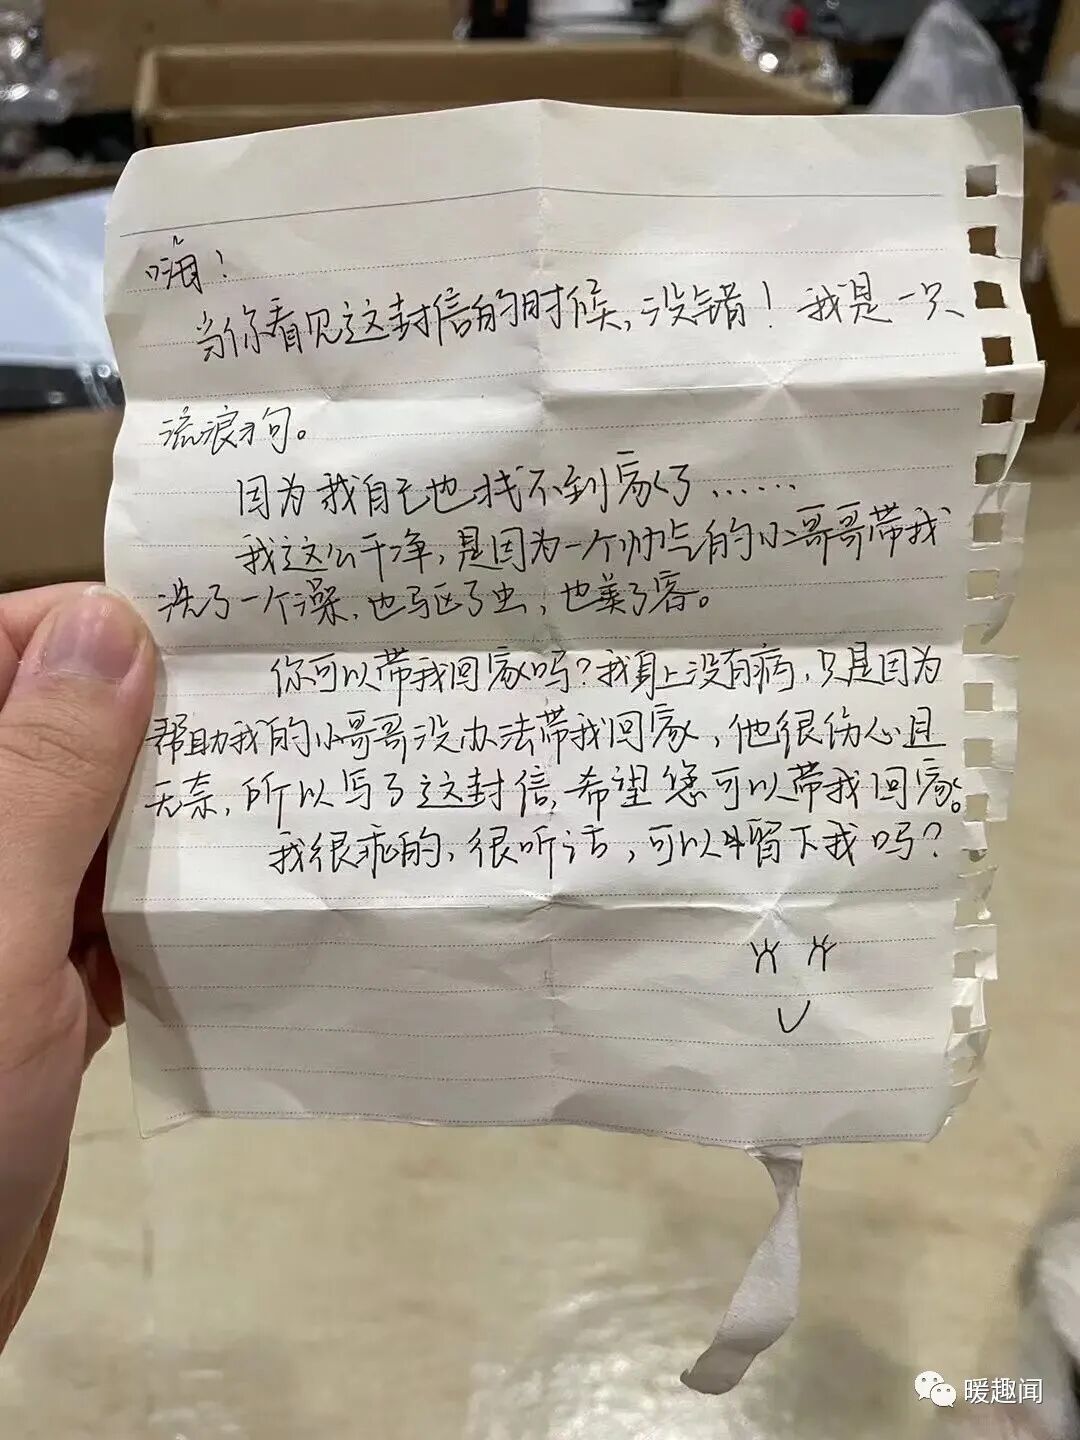 嗨！
当你看见这封信的时候，没错！我是一只
流浪狗。
因为我自己也找不到家了……
我这么干净，是因为一个帅气的小哥哥带我
洗了一个澡，也驱了虫，也美了容。
你可以带我回家吗？我身上没有病，只是因为
帮助我的小哥哥没办法带我回家，他很伤心且
无奈，所以写了这封信，希望您可以带我回家。
我很乖的，很听话，可以留下我吗？
暖趣闻